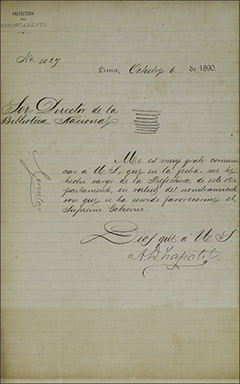 PREFECTURA
DEL
DEPARTAMENTO
No. 1027
Lima, Octubre 6 de 1890.
Sor Director de la
Biblioteca Nacional
Me es muy grato comuni
car a US, que en la fecha, me he
hecho cargo de la Prefectura de este De
partamento, en virtud del nombramiento
con que se ha servido favorecerme el
Supremo Gobierno.
Dios gue á US